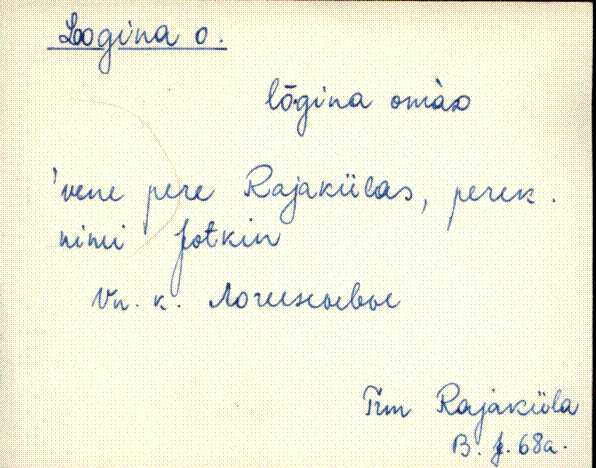 Logina o.
lōgina omàᴅ
'vene pere Rajakülas, perek.
nimi fotkin
Vn. k. Логиновое
Trm Rajaküla
B. f. 68a.